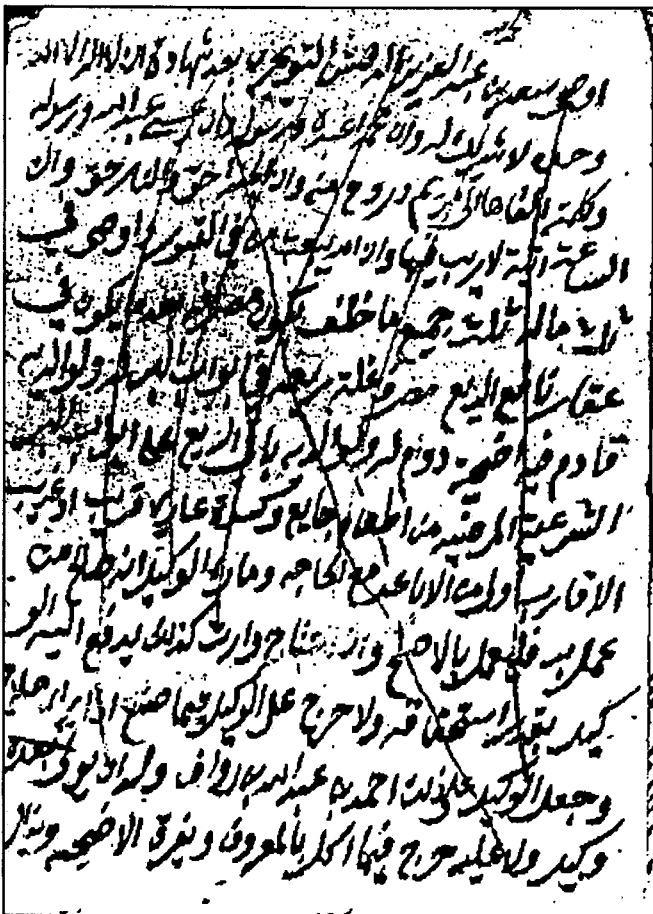 اوصى سعد بن عبد العزيز التويجري بعد شهادة ان لا اله الا الله
وحده لا شريك له وان محمدا عبده ورسوله وان عيسى عبد الله ورسوله
وكلمته القاها الى مريم وروح منه وان الجنة حق والنار حق وان
الساعة اتية لا ريب فيها وان الله يبعث من في القبور واوصى في
ثلث ماله ثلث جميع ما خلف يكون بعده يكون في
عقار نافع الريع وغلته في ابواب البر له ولوالديه
قادم فيه اضحية دوم له ولوالديه باقي الريع على ابواب البر
الشرعية المرضيه من اطعام جايع وكسوة عاري قريب او غريب
الاقارب اولى من الاباعد مع الحاجه وما راى الوكيل انه صالح من
عمل بر فليعمل بالاصلح وان احتاج وارث كذلك يدفع اليه الو
كيل بقدر استحقاقه ولا حرج على الوكيل فيما صنع اذا اراد
وجعل الوكيل على ذلك احمد بن عبد الله الرواف وله ان يوكل بعده
وكيل ولا عليه حرج فيما اكل بالمعروف ويفرق الاضحيه